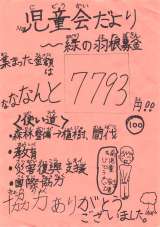 児童会だより
じどうかい
〜緑の羽根募金
集まった金額は
なななんと 7793円!!
100
〈使い道〉
・森林整備→植樹、間伐
・教育
・災害復興支援
・国際協力
協力ありがとう
ございました。